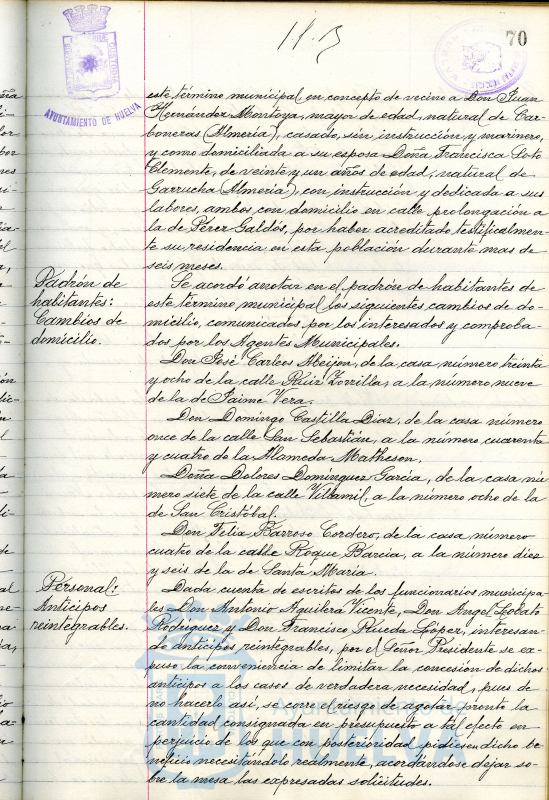 70
11.3
AYUNTAMIENTO DE HUELVA
este término municipal en concepto de vecino a Don Juan
Hernández Montoya, mayor de edad, natural de Car-
boneras (Almería), casado, sin instrucción y marinero,
y como domiciliada a su esposa Doña Francisca Soto
Clemente, de veinte y un años de edad, natural de
Garrucha (Almería), con instrucción y dedicada a sus
labores, ambos con domicilio en calle prolongación a
la de Pérez Galdós, por haber acreditado testificalmen-
te su residencia en esta población durante mas de
seis meses.
Padrón de
habitantes:
Cambios de
domicilio.
Se acordó anotar en el padrón de habitantes de
este término municipal los siguientes cambios de do-
micilio, comunicados por los interesados y comproba-
dos por los Agentes Municipales.
Don José Carlos Abeijon, de la casa número treinta
y ocho de la calle Ruiz Zorrilla, a la número nueve
de la de Jaime Vera.
Don Domingo Castilla Diaz, de la casa número
once de la calle San Sebastián, a la número cuarenta
y cuatro de la Alameda Matheson.
Doña Dolores Domínguez García, de la casa nú
mero siete de la calle Villamil, a la número ocho de la
de San Cristóbal.
Don Felix Barroso Cordero, de la casa número
cuatro de la calle Roque Barcia, a la número diez
y seis de la de Santa María.
Personal:
Anticipos
reintegrables.
Dada cuenta de escritos de los funcionarios municipa-
les Don Antonio Aguilera Vicente, Don Angel Lobato
Rodríguez y Don Francisco Rueda López, interesan-
do anticipos reintegrables, por el Señor Presidente se ex-
puso la conveniencia de limitar la concesión de dichos
anticipos a los casos de verdadera necesidad, pues de
no hacerlo así, se corre el riesgo de agotar pronto la
cantidad consignada en presupuesto a tal efecto en
perjuicio de los que con posterioridad pidiesen dicho be-
neficio necesitándolo realmente, acordándose dejar so-
bre la mesa las expresadas solicitudes.